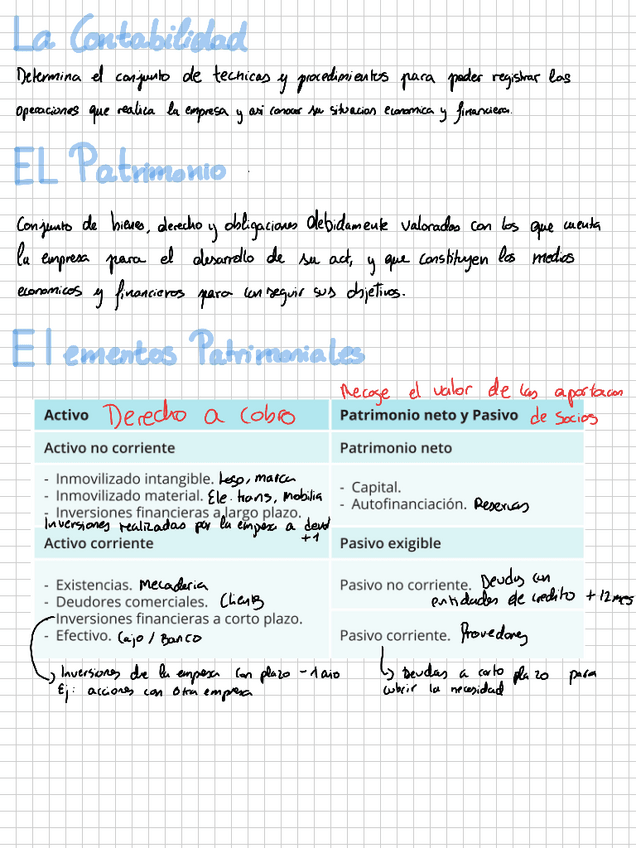 La Contabilidad
Determina el conjunto de tecnicas y procedimientos para poder registrar las
operaciones que realica la empresa y asi conocer su situacion economica y financiera.
EL Patrimonio
Conjunto de bienes, derecho y obligaciones debidamente valorados con los que cuenta
la empresa para el desarrollo de su act, y que constituyen los medios
economicos y financieros para conseguir sus objetivos.
Elementos Patrimoniales
Recoge el valor de las aportacion
Activo Derecho a cobro
Patrimonio neto y Pasivo de Socios
Activo no corriente
Patrimonio neto
- Inmovilizado intangible. Logo, marca
- Inmovilizado material. Ele. trans, mobilia
- Inversiones financieras a largo plazo.
Inversiones realizadas por la empesa a
+1
- Capital.
- Autofinanciación. Reservas
Activo corriente
Pasivo exigible
- Existencias. Mecaderia
- Deudores comerciales. Clientes
- Inversiones financieras a corto plazo.
- Efectivo. Caja / Banco
Pasivo no corriente. Deudas con
entidades de credito +12 mes
Pasivo corriente. Provedores
Inversiones de la empesa con plazo -1 año
Ej: acciones con otra empresa
Deudas a corto plazo para
cubrir la necesidad